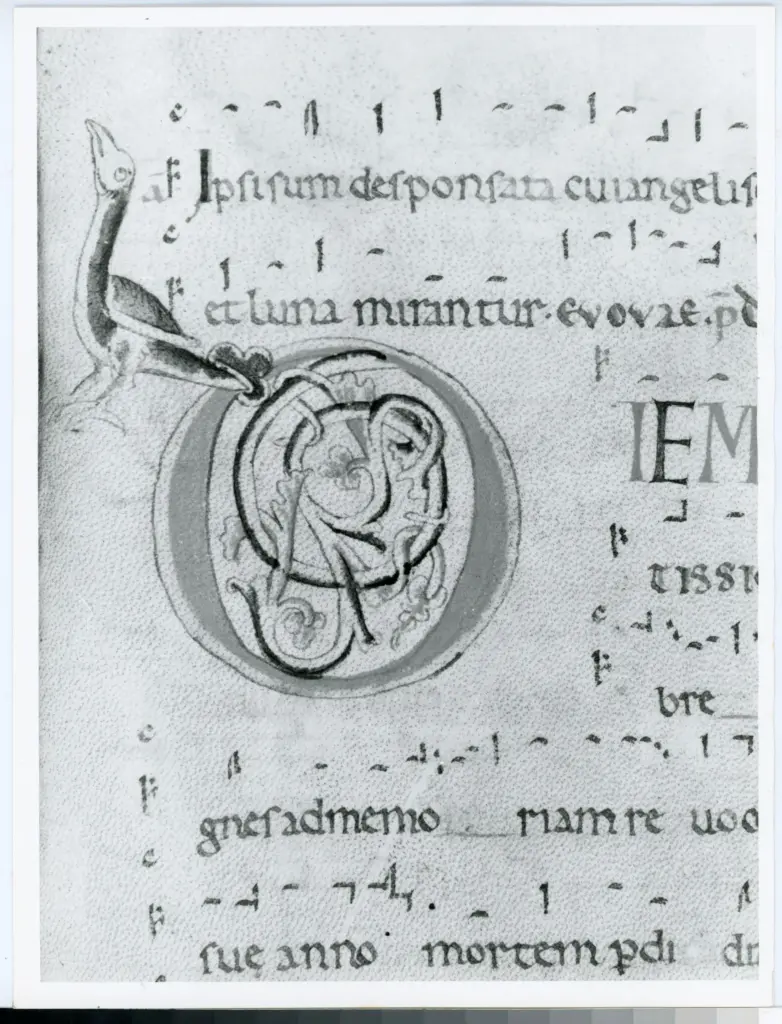 a̅ Ipsi sum desponsata cui angelis
et luna mirantur. evovae. p̅
DIEM
tissi
bre
gnes ad memo riam re uo
sue anno mortem p̲di